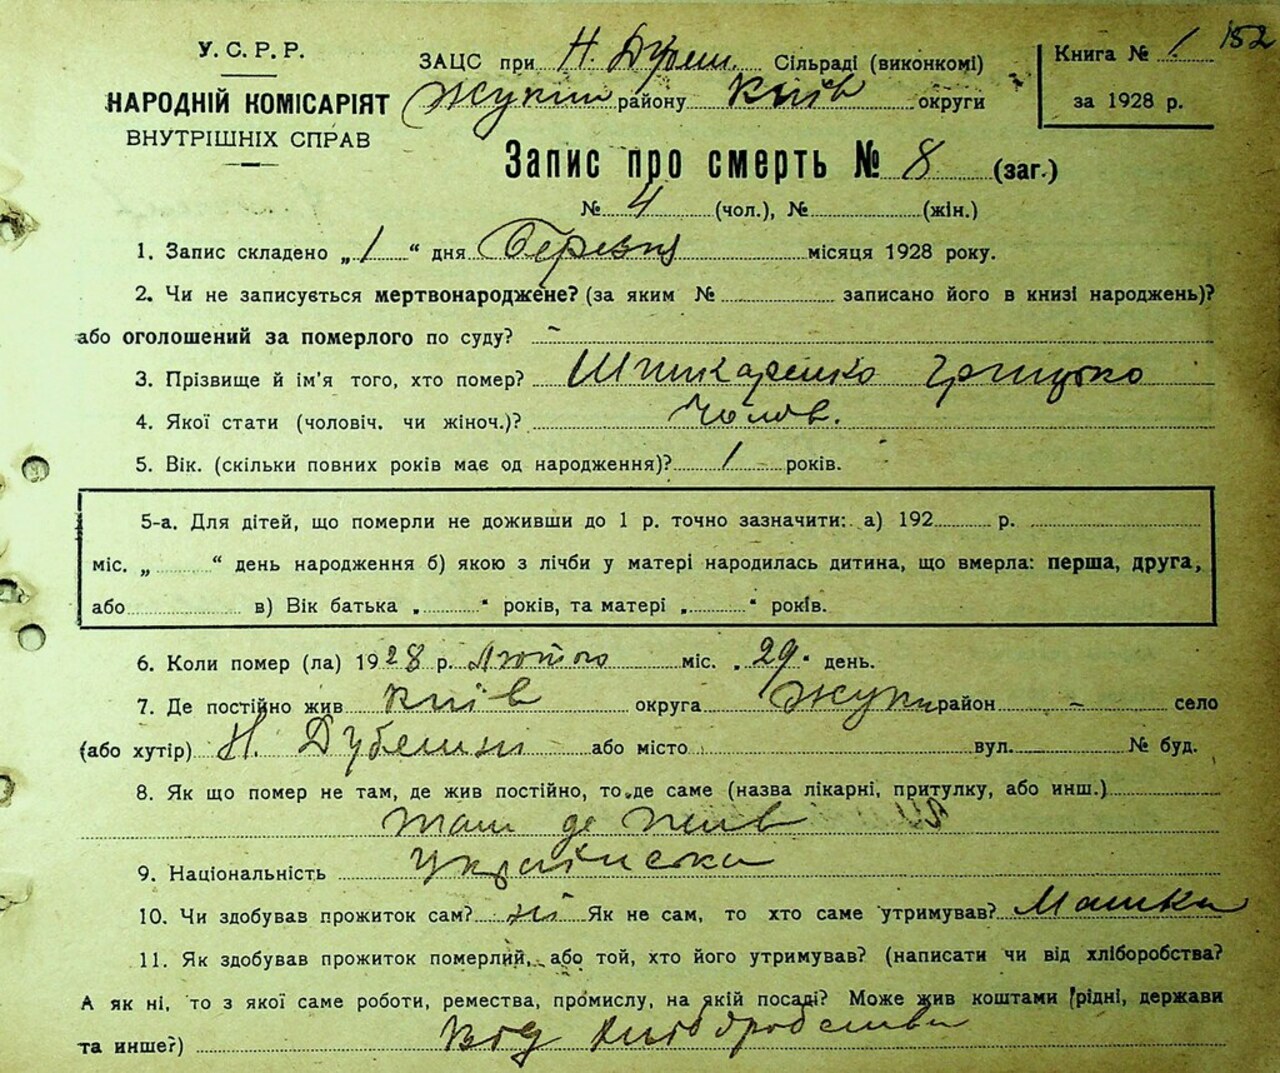 152
У. С. Р. Р.
НАРОДНІЙ КОМІСАРІЯТ
ВНУТРІШНІХ СПРАВ
ЗАЦС при Н. Дубеш. Сільраді (виконкомі)
Жукин району Київ округи
Книга № 1
за 1928 р.
Запис про смерть № 8 (заг.)
№ 4 (чол.), № (жін.)
1. Запис складено „ 1 “ дня Березня місяця 1928 року.
2. Чи не записується мертвонароджене? (за яким № записано його в книзі народжень)?
або оголошений за померлого по суду? –
3. Прізвище й ім'я того, хто помер? Шпикаренко Грицько
4. Якої стати (чоловіч. чи жіноч.)? Чолов.
5. Вік. (скільки повних років має од народження)? 1 років.
5-а. Для дітей, що померли не доживши до 1 р. точно зазначити: а) 192 р.
міс. „ “ день народження б) якою з лічби у матері народилась дитина, що вмерла: перша, друга,
або в) Вік батька „ “ років, та матері „ “ років.
6. Коли помер (ла) 1928 р. Лютого міс. „ 29 “ день.
7. Де постійно жив Київ округа Жукин район – село
(або хутір) Н. Дубешні або місто вул. № буд.
8. Як що помер не там, де жив постійно, то де саме (назва лікарні, притулку, або инш.)
там де жив
9. Національність Українська
10. Чи здобував прожиток сам? ні Як не сам, то хто саме утримував? Матка
11. Як здобував прожиток померлий, або той, хто його утримував? (написати чи від хліборобства?
А як ні, то з якої саме роботи, ремества, промислу, на якій посаді? Може жив коштами рідні, держави
та инше?) Від хліборобства